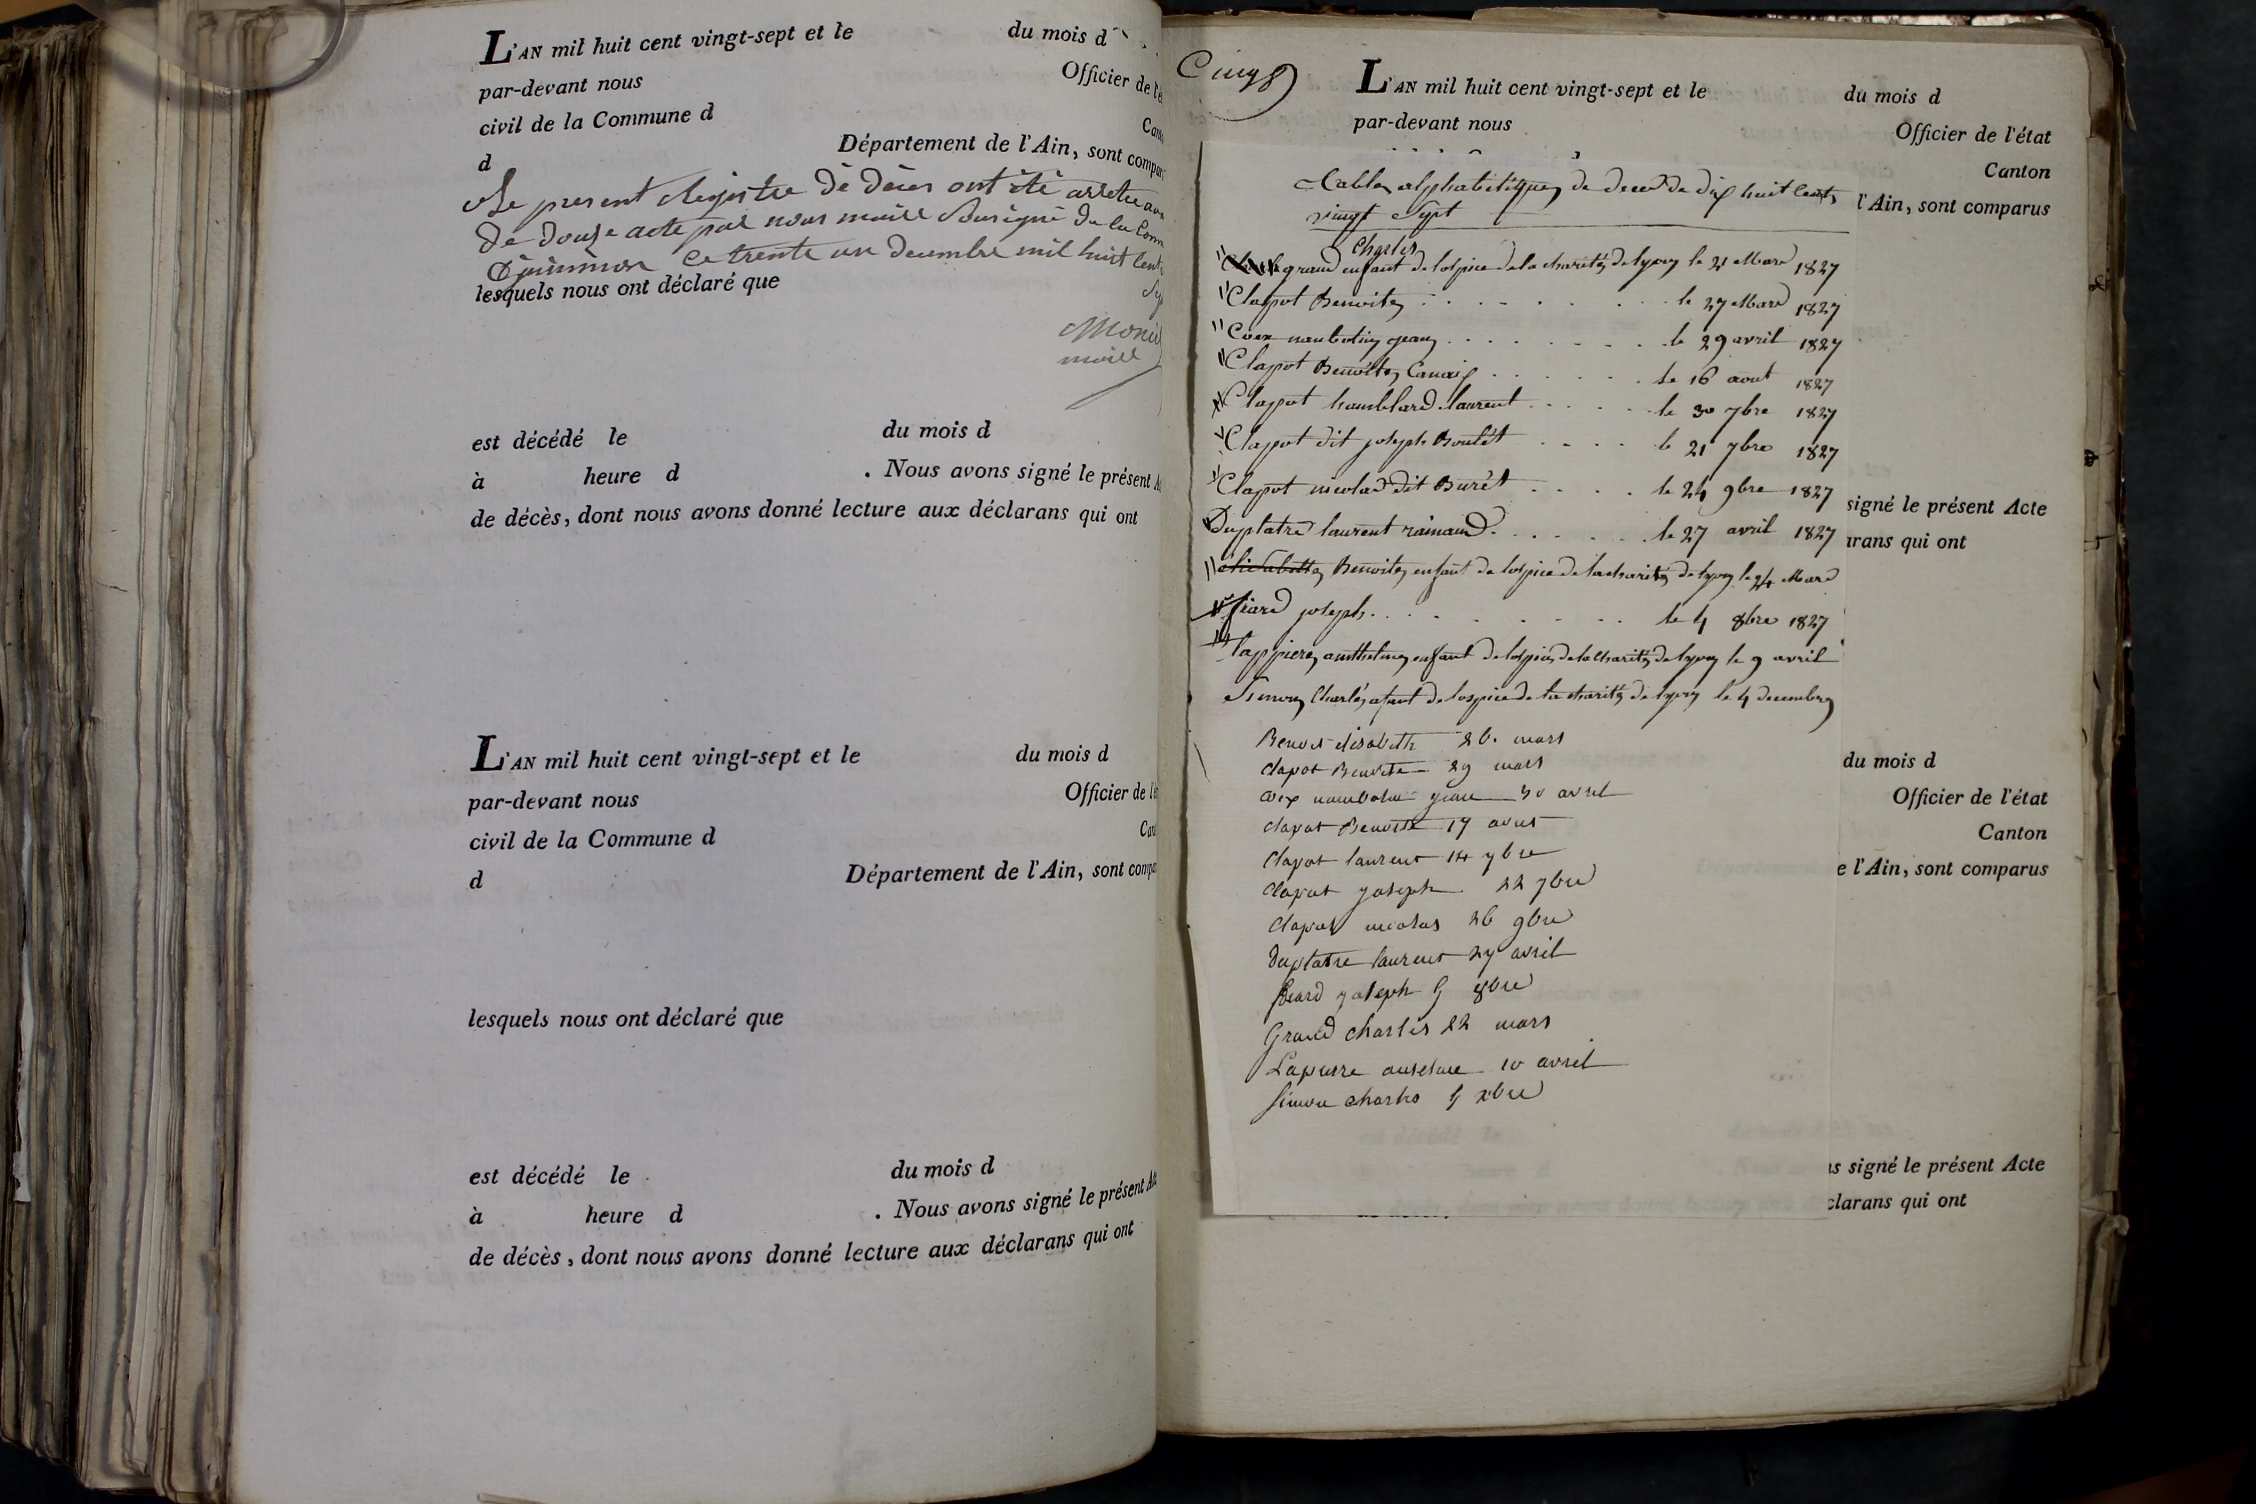 L'AN mil huit cent vingt-sept et le du mois d
par-devant nous Officier de l'é
civil de la Commune d Cant
d Département de l'Ain, sont compar
Le present Registre de déces ont été arretté au
de douze acte par nous maire Sousigné de la Com
Ce trente un decembre mil huit Cent
lesquels nous ont déclaré que
maire
est décédé le du mois d
à heure d . Nous avons signé le présent A
de décès, dont nous avons donné lecture aux déclarans qui ont
L'AN mil huit cent vingt-sept et le du mois d
par-devant nous Officier de l'é
civil de la Commune d Can
d Département de l'Ain, sont compa
lesquels nous ont déclaré que
est décédé le du mois d
à heure d . Nous avons signé le présent Ac
de décès, dont nous avons donné lecture aux déclarans qui ont
Cinq
L'AN mil huit cent vingt-sept et le du mois d
par-devant nous Officier de l'état
Canton
l'Ain, sont comparus
Table alphabétique de deces de dix huit Cents
vingt Sept
Charles
grand enfant de lospice de la charité de lyon le 21 Mars 1827
Clapot Benoite le 27 Mars 1827
Coex nambotin jean le 29 avril 1827
Clapot Benoite le 16 aout 1827
Clapot laurent le 30 7bre 1827
Clapot dit joseph Boulét le 21 7bre 1827
Clapot nicolas dit Burét le 24 9bre 1827
Duplatre laurent rainaud le 27 avril 1827
Benoite enfant de lospice de la charité de lyon le 24 Mars
fiard joseph le 4 8bre 1827
lappiere anthelme enfant de lospice de la charité de lyon le 9 avril
Simon Charles enfant de lospice de la charité de lyon le 4 decembre
Benoit elisabeth 26 mars
clapot Benoite 29 mars
coex nambotin jean 30 avril
clapot Benoite 17 aout
clapot laurent 14 7bre
clapot joseph 22 7bre
clapot nicolas 26 9bre
duplatre laurent 27 avril
fiard joseph 5 8bre
Grand charles 22 mars
Lapierre anselme 10 avril
Simon charles 5 xbre
signé le présent Acte
arans qui ont
du mois d
Officier de l'état
Canton
e l'Ain, sont comparus
s signé le présent Acte
clarans qui ont